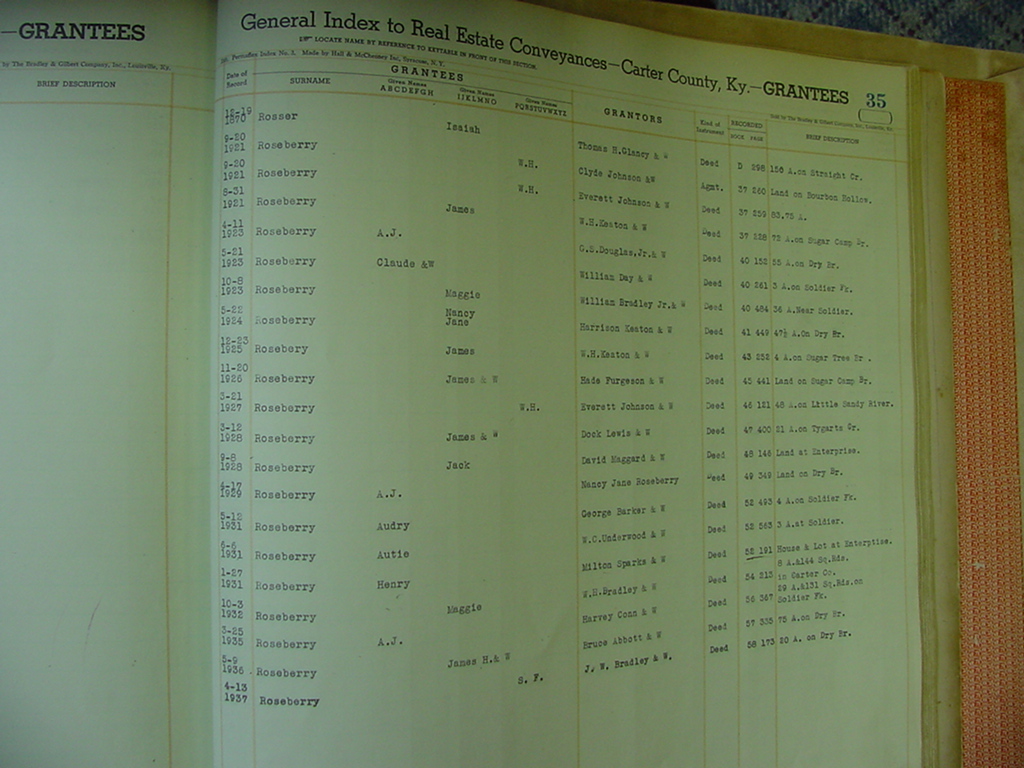 —GRANTEES
by The Bradley & Gilbert Company, Inc., Louisville, Ky.
BRIEF DESCRIPTION
General Index to Real Estate Conveyances—Carter County, Ky.—GRANTEES 35
LOCATE NAME BY REFERENCE TO KEYTABLE IN FRONT OF THIS SECTION.
Made by Hall & McChesney Inc, Syracuse, N. Y.
Sold by The Bradley & Gilbert Company, Inc., Louisville, Ky.
GRANTEES
Date of Record SURNAME Given Names ABCDEFGH Given Names IJKLMNO Given Names PQRSTUVWXYZ GRANTORS Kind of Instrument RECORDED BOOK PAGE BRIEF DESCRIPTION
12-19 1870 Rosser Isaiah Thomas H.Glancy & W Deed D 298 150 A.on Straight Cr.
9-20 1921 Roseberry W.H. Clyde Johnson &W Agmt. 37 260 Land on Bourbon Hollow.
9-20 1921 Roseberry W.H. Everett Johnson & W Deed 37 259 83.75 A.
8-31 1921 Roseberry James W.H.Keaton & W Deed 37 228 72 A.on Sugar Camp Br.
4-11 1923 Roseberry A.J. G.S.Douglas,Jr.& W Deed 40 152 55 A.on Dry Br.
5-21 1923 Roseberry Claude &W William Day & W Deed 40 261 3 A.on Soldier Fk.
10-8 1923 Roseberry Maggie William Bradley Jr.& W Deed 40 484 36 A.Near Soldier.
5-22 1924 Roseberry Nancy Jane Harrison Keaton & W Deed 41 449 47½ A.On Dry Br.
12-23 1925 Rosebery James W.H.Keaton & W Deed 43 252 4 A.on Sugar Tree Br.
11-20 1926 Roseberry James & W Hade Furgeson & W Deed 45 441 Land on Sugar Camp Br.
3-21 1927 Roseberry W.H. Everett Johnson & W Deed 46 121 48 A.on Little Sandy River.
3-12 1928 Roseberry James & W Dock Lewis & W Deed 47 400 21 A.on Tygarts Cr.
9-8 1928 Roseberry Jack David Maggard & W Deed 48 146 Land at Enterprise.
4-17 1929 Roseberry A.J. Nancy Jane Roseberry Deed 49 349 Land on Dry Br.
5-12 1931 Roseberry Audry George Barker & W Deed 52 493 4 A.on Soldier Fk.
6-6 1931 Roseberry Autie W.C.Underwood & W Deed 52 563 3 A.at Soldier.
1-27 1931 Roseberry Henry Milton Sparks & W Deed 52 191 House & Lot at Enterprise.
10-3 1932 Roseberry Maggie W.H.Bradley & W Deed 54 213 8 A.&144 Sq.Rds. in Carter Co.
3-25 1935 Roseberry A.J. Harvey Conn & W Deed 56 367 29 A.&131 Sq.Rds.on Soldier Fk.
5-9 1936 Roseberry James H.& W Bruce Abbott & W Deed 57 335 75 A.on Dry Br.
4-13 1937 Roseberry S. F. J. W. Bradley & W. Deed 58 173 20 A. on Dry Br.